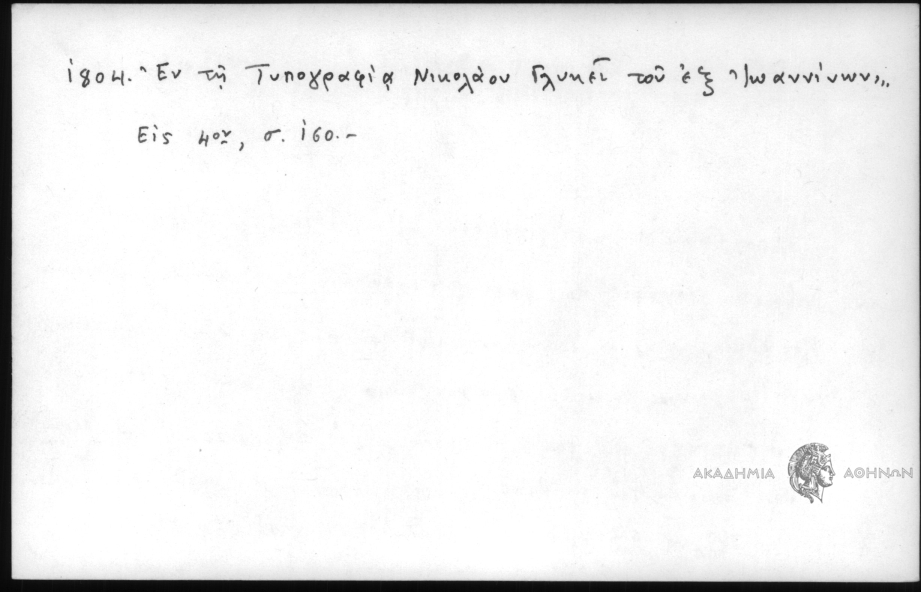 1804. Ἐν τῇ Τυπογραφίᾳ Νικολάου Γλυκεῖ τοῦ ἐξ Ἰωαννίνων,,.
Εἰς 4ον, σ. 160.-
ΑΚΑΔΗΜΙΑ ΑΘΗΝΩΝ